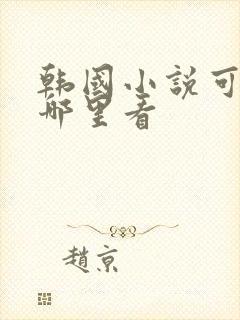 韩國小説可
哪里看
趙京